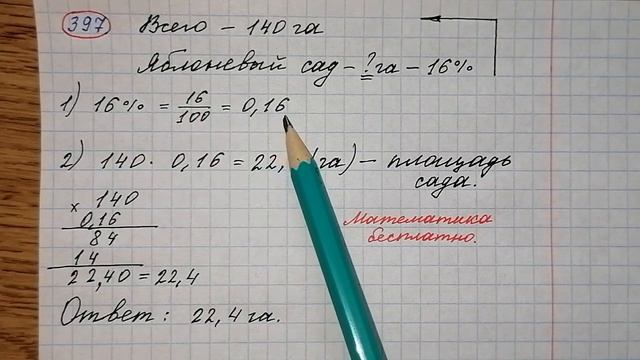 397 Всего - 140 га
Яблоневый сад - ? га - 16%
1) 16% = 16/100 = 0,16
2) 140 · 0,16 = 22, (га) - площадь
сада.
× 140
0,16
84
14
22,40 = 22,4
Математика
бесплатно.
Ответ: 22,4 га.